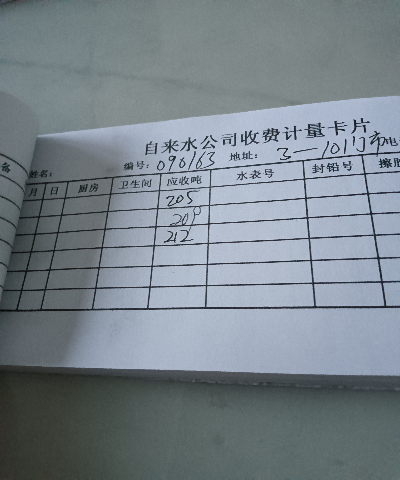 自来水公司收费计量卡片
姓名: 编号: 090163 地址: 3-101门市
备
月 日 厨房 卫生间 应收吨 水表号 封铅号
205
209
212